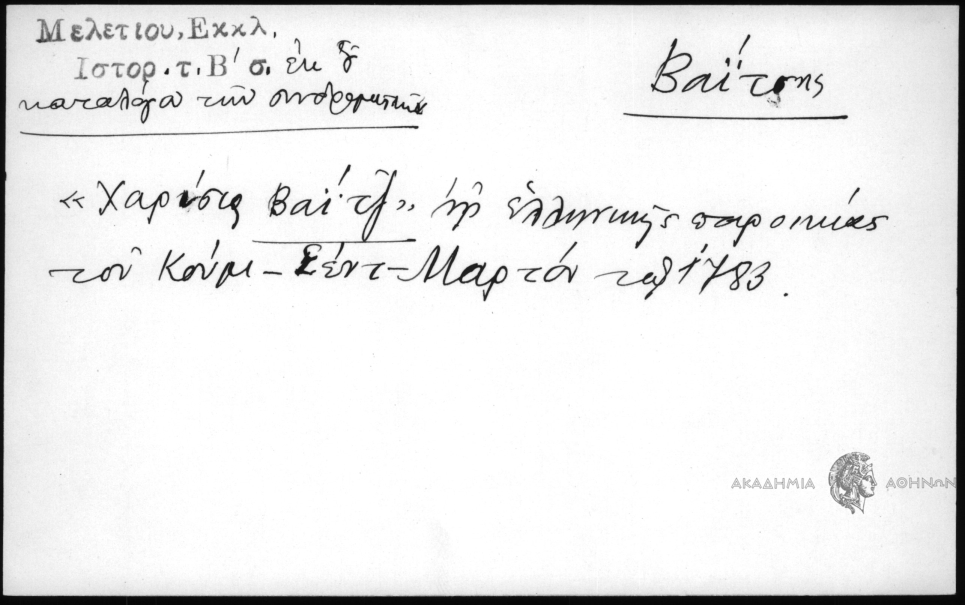 Μελετίου, Εκκλ.
Ιστορ. τ. Β΄ σ. ἐκ τοῦ
καταλόγου τῶν συνδρομητῶν
Βαΐτσης
«Χαρίσης Βαΐτζη» τῆς ἑλληνικῆς παροικίας
τοῦ Κούμ-Σέντ-Μαρτόν τοῦ 1783.
ΑΚΑΔΗΜΙΑ ΑΘΗΝΩΝ